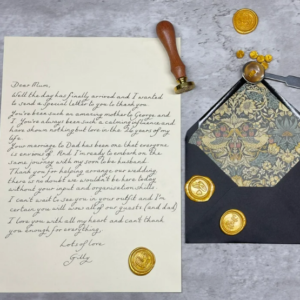 Dear Mum,
Well the day has finally arrived and I wanted
to send a special letter to you to thank you.
You've been such an amazing mother to George and
I. You've always been such a calming influence and
have shown nothing but love in the 26 years of my
life.
Your marriage to Dad has been one that everyone
is envious of. And I'm ready to embark on the
same journey with my soon to be husband.
Thank you for helping arrange our wedding,
there is no doubt we wouldn't be here today
without your input and organisation skills.
I can't wait to see you in your outfit and I'm
certain you will wow all of our guests (and dad)
I love you with all my heart and can't thank
you enough for everything.
Lots of love
Gilly